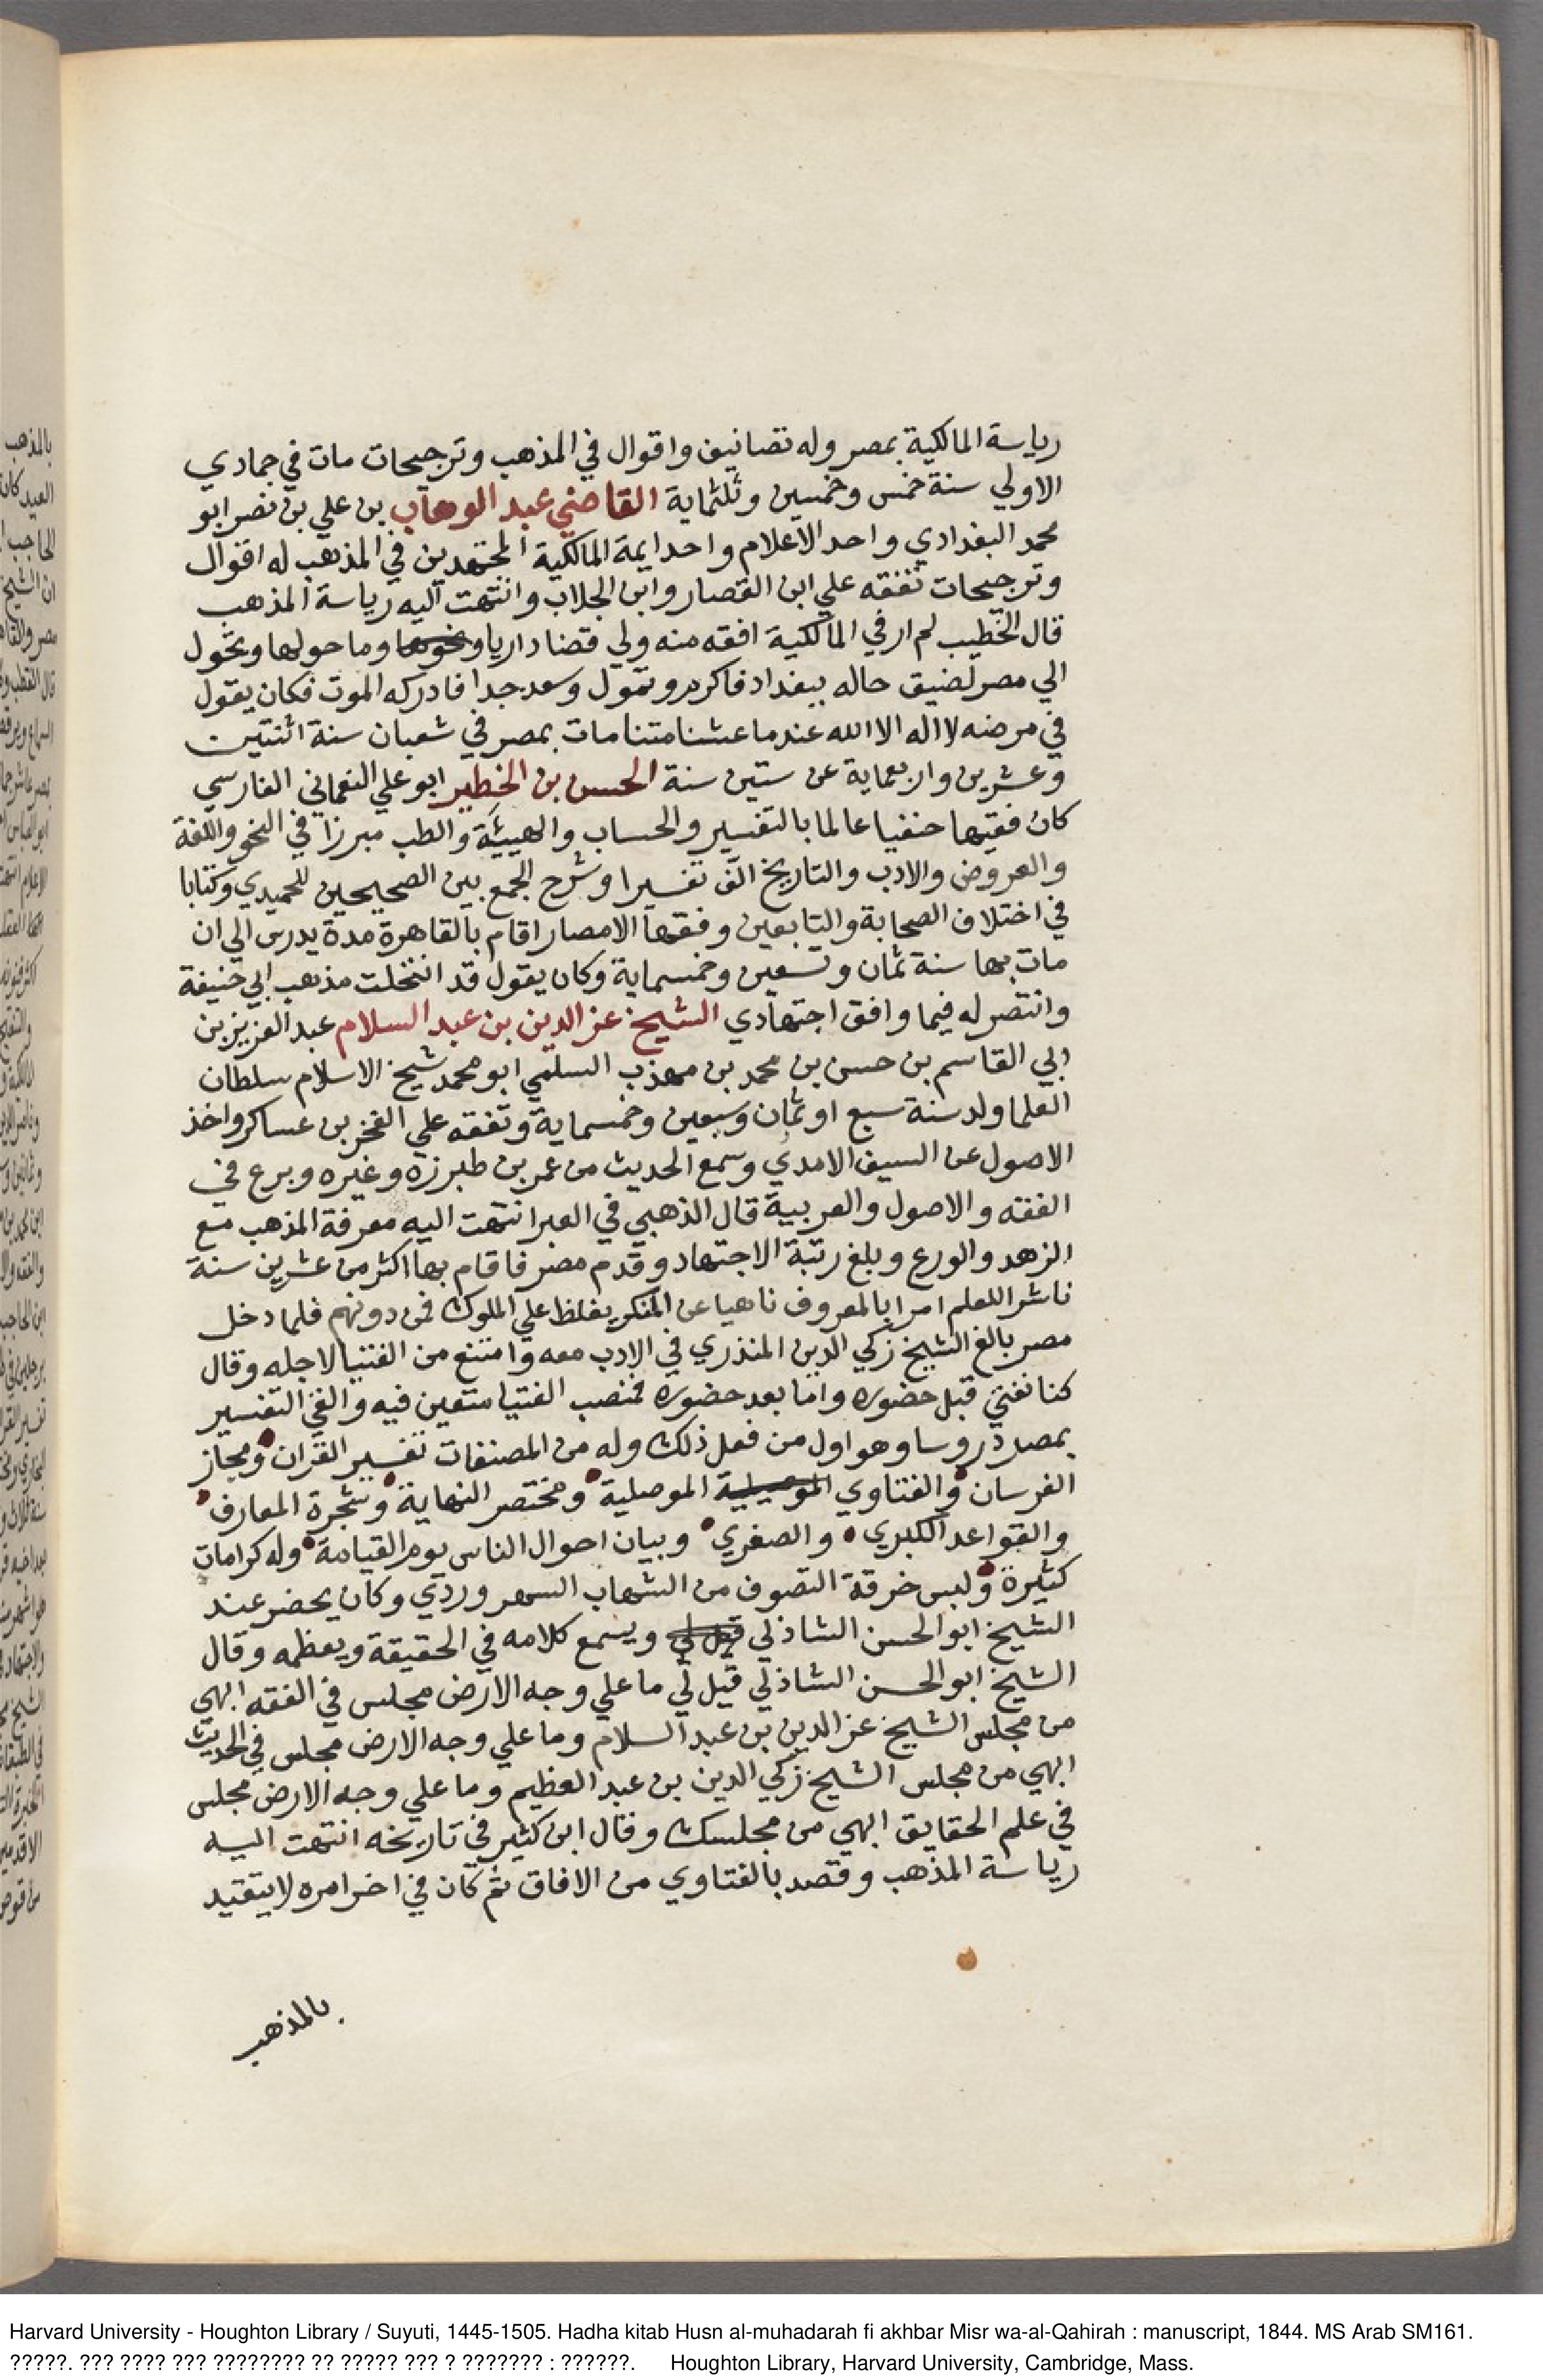 رياسة المالكية بمصر وله تصانيف واقوال في المذهب وترجيحات مات في جمادي
الاولي سنة خمس وخمسين وثلثماية القاضي عبد الوهاب بن علي بن نصر ابو
محمد البغدادي واحد الاعلام واحد ايمة المالكية المجتهدين في المذهب له اقوال
وترجيحات تفقه علي ابن القصار وابن الجلاب وانتهت اليه رياسة المذهب
قال الخطيب لم ار في المالكية افقه منه ولي قضا داريا ونحوها وما حولها وتحول
الي مصر لضيق حاله ببغداد فاكرم وتمول وسعد جدا فادركه الموت فكان يقول
في مرضه لا اله الا الله عندما عشنا متنا مات بمصر في شعبان سنة اثنتين
وعشرين واربعماية عن ستين سنة الحسن بن الخطير ابو علي النعماني الفارسي
كان فقيها حنفيا عالما بالتفسير والحساب والهيئة والطب مبرزا في النحو واللغة
والعروض والادب والتاريخ الف تفسيرا وشرح الجمع بين الصحيحين للحميدي وكتابا
في اختلاف الصحابة والتابعين وفقها الامصار اقام بالقاهرة مدة يدرس الي ان
مات بها سنة ثمان وتسعين وخمسماية وكان يقول قد انتحلت مذهب ابي حنيفة
وانتصر له فيما وافق اجتهادي الشيخ عز الدين بن عبد السلام عبد العزيز بن
ابي القاسم بن حسن بن محمد بن مهذب السلمي ابو محمد شيخ الاسلام سلطان
العلما ولد سنة سبع او ثمان وسبعين وخمسماية وتفقه علي الفخر بن عساكر واخذ
الاصول عن السيف الامدي وسمع الحديث من عمر بن طبرزه وغيره وبرع في
الفقه والاصول والعربية قال الذهبي في العبر انتهت اليه معرفة المذهب مع
الزهد والورع وبلغ رتبة الاجتهاد وقدم مصر فاقام بها اكثر من عشرين سنة
ناشرا للعلم امرا بالمعروف ناهيا عن المنكر يغلظ علي الملوك فمن دونهم فلما دخل
مصر بالغ الشيخ زكي الدين المنذري في الادب معه وامتنع من الفتيا لاجله وقال
كنا نفتي قبل حضوره واما بعد حضوره فمنصب الفتيا متعين فيه والقي التفسير
بمصر دروسا وهو اول من فعل ذلك وله من المصنفات تفسير القران ومجاز
الفرسان والفتاوي الموصيلية الموصلية ومختصر النهاية وشجرة المعارف
والقواعد الكبري والصغري وبيان احوال الناس يوم القيامة وله كرامات
كثيرة ولبس خرقة التصوف من الشهاب السهروردي وكان يحضر عند
الشيخ ابو الحسن الشاذلي قيل لي ويسمع كلامه في الحقيقة ويعظمه وقال
الشيخ ابو الحسن الشاذلي قيل لي ما علي وجه الارض مجلس في الفقه ابهي
من مجلس الشيخ عز الدين بن عبد السلام وما علي وجه الارض مجلس في الحديث
ابهي من مجلس الشيخ زكي الدين بن عبد العظيم وما علي وجه الارض مجلس
في علم الحقايق ابهي من مجلسك وقال ابن كثير في تاريخه انتهت اليه
رياسة المذهب وقصد بالفتاوي من الافاق ثم كان في اخر امره لا يتقيد
بالمذهب
Harvard University - Houghton Library / Suyuti, 1445-1505. Hadha kitab Husn al-muhadarah fi akhbar Misr wa-al-Qahirah : manuscript, 1844. MS Arab SM161.
?????. ??? ???? ??? ???????? ?? ????? ??? ? ??????? : ??????. Houghton Library, Harvard University, Cambridge, Mass.